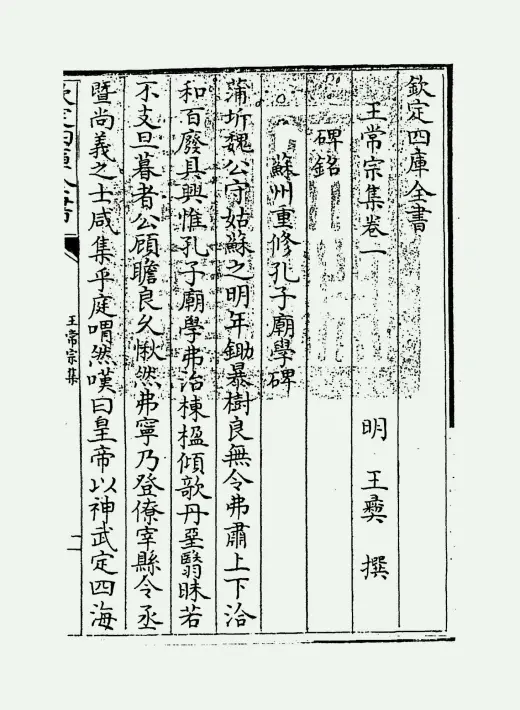 欽定四庫全書
王常宗集卷一
明 王彞 撰
碑銘
蘇州重修孔子廟學碑
蒲圻魏公守姑蘇之明年鋤暴樹良無令弗肅上下洽
和百廢具興惟孔子廟學弗治棟楹傾欹丹堊翳昧若
不支旦暮者公顧瞻良久愀然弗寧乃登僚宰縣令丞
暨尚義之士咸集乎庭喟然嘆曰皇帝以神武定四海
欽定四庫全書
王常宗集
一